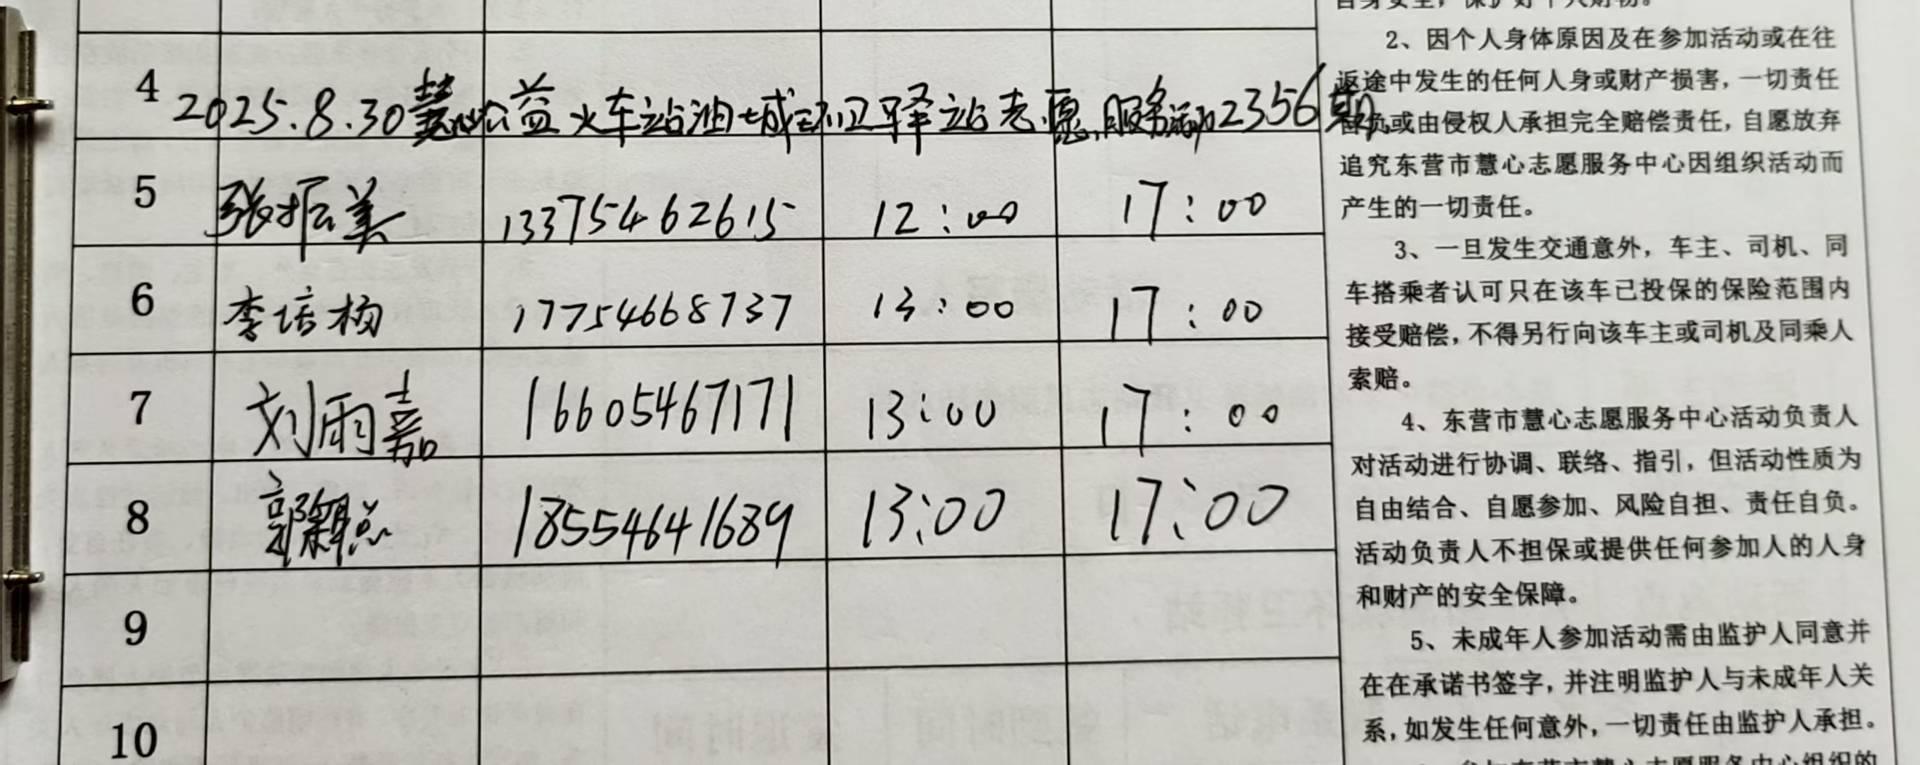 4 2025.8.30慧心公益火车站油城环卫驿站志愿服务活动2356期
5 张振美 13375462615 12:00 17:00
6 李培杨 17754668737 13:00 17:00
7 刘雨嘉 16605467171 13:00 17:00
8 郭 18554641689 13:00 17:00
9
10
自身安全，保护好个人财物。
2、因个人身体原因及在参加活动或在往
返途中发生的任何人身或财产损害，一切责任
自负或由侵权人承担完全赔偿责任，自愿放弃
追究东营市慧心志愿服务中心因组织活动而
产生的一切责任。
3、一旦发生交通意外，车主、司机、同
车搭乘者认可只在该车已投保的保险范围内
接受赔偿，不得另行向该车主或司机及同乘人
索赔。
4、东营市慧心志愿服务中心活动负责人
对活动进行协调、联络、指引，但活动性质为
自由结合、自愿参加、风险自担、责任自负。
活动负责人不担保或提供任何参加人的人身
和财产的安全保障。
5、未成年人参加活动需由监护人同意并
在在承诺书签字，并注明监护人与未成年人关
系，如发生任何意外，一切责任由监护人承担。
参与东营市慧心志愿服务中心组织的